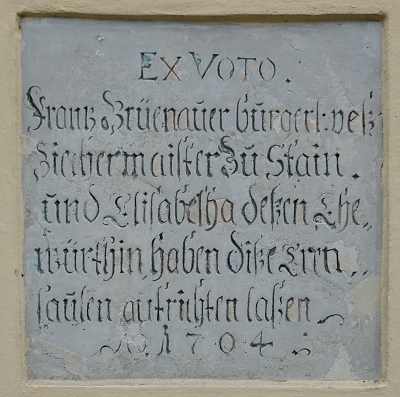 EX VOTO.
Frantz Grüenauer burgerl: veß
Ziehermaister Zu Stain.
und Elisabetha deßen Ehe=
würthin haben diße Eren
saulen aufrichten laßen
A. 1704.